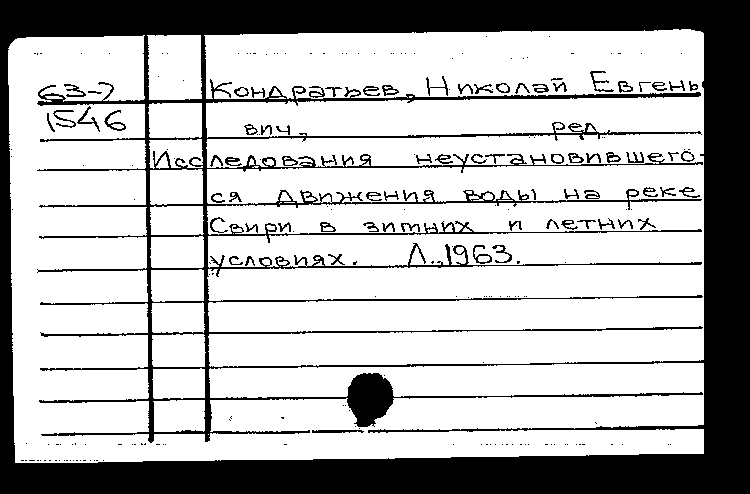 63-7 Кондратьев, Николай Евгень
1546 вич, ред.
Исследования неустановившего-
ся движения воды на реке
Свири в зимних и летних
условиях. Л., 1963.